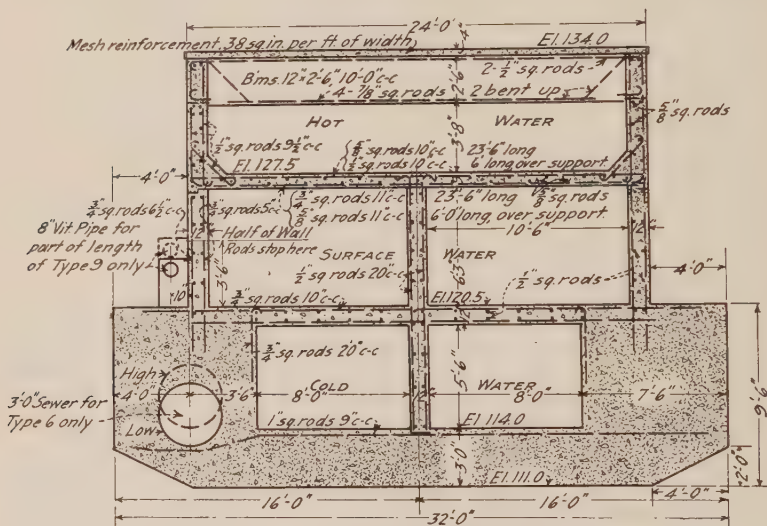 24'-0"
Mesh reinforcement .38 sq.in. per ft. of width
El. 134.0
4"
Bms. 12" × 2'-6" 10'-0" c-c
2'-6"
2-1/2" sq. rods
4-7/8" sq. rods
2 bent up
5/8" sq. rods
HOT WATER
3'-8"
1/2" sq. rods 9 1/2" c-c
5/8" sq. rods 10" c-c 23'-6" long
1/2" sq. rods 10" c-c 6' long over support
El. 127.5
4'-0"
3/4" sq. rods 6 1/2" c-c
sq. rods 5" c-c
3/4" sq. rods 11" c-c 23'-6" long
5/8" sq. rods 11" c-c 6'-0" long, over support
sq. rods
8" Vit Pipe for
part of length
of Type 9 only
12"
Half of Wall
Rods stop here
10'-6"
12"
SURFACE WATER
3'-6"
10"
1/2" sq. rods 20" c-c
6'-3"
1/2" sq. rods
4'-0"
3/4" sq. rods 10" c-c
El. 120.5
12"
3/4" sq. rods 20" c-c
High
5'-6"
COLD WATER
4'-0"
3'-6"
8'-0"
12"
8'-0"
7'-6"
3'-0" Sewer for
Type 6 only
Low
1" sq. rods 9" c-c
El. 114.0
9'-6"
3'-0"
El. 111.0
2'-0"
4'-0"
16'-0"
16'-0"
32'-0"